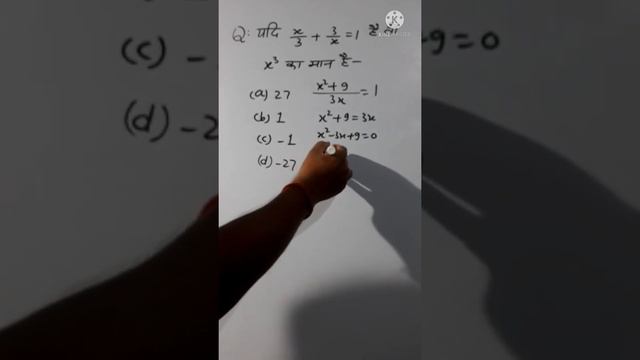 Q: यदि x/3 + 3/x = 1 है तो
x³ का मान है-
(a) 27
(b) 1
(c) -1
(d) -27
(x²+9)/3x = 1
x²+9 = 3x
x²-3x+9=0
(c) -
(d) -2
+9=0